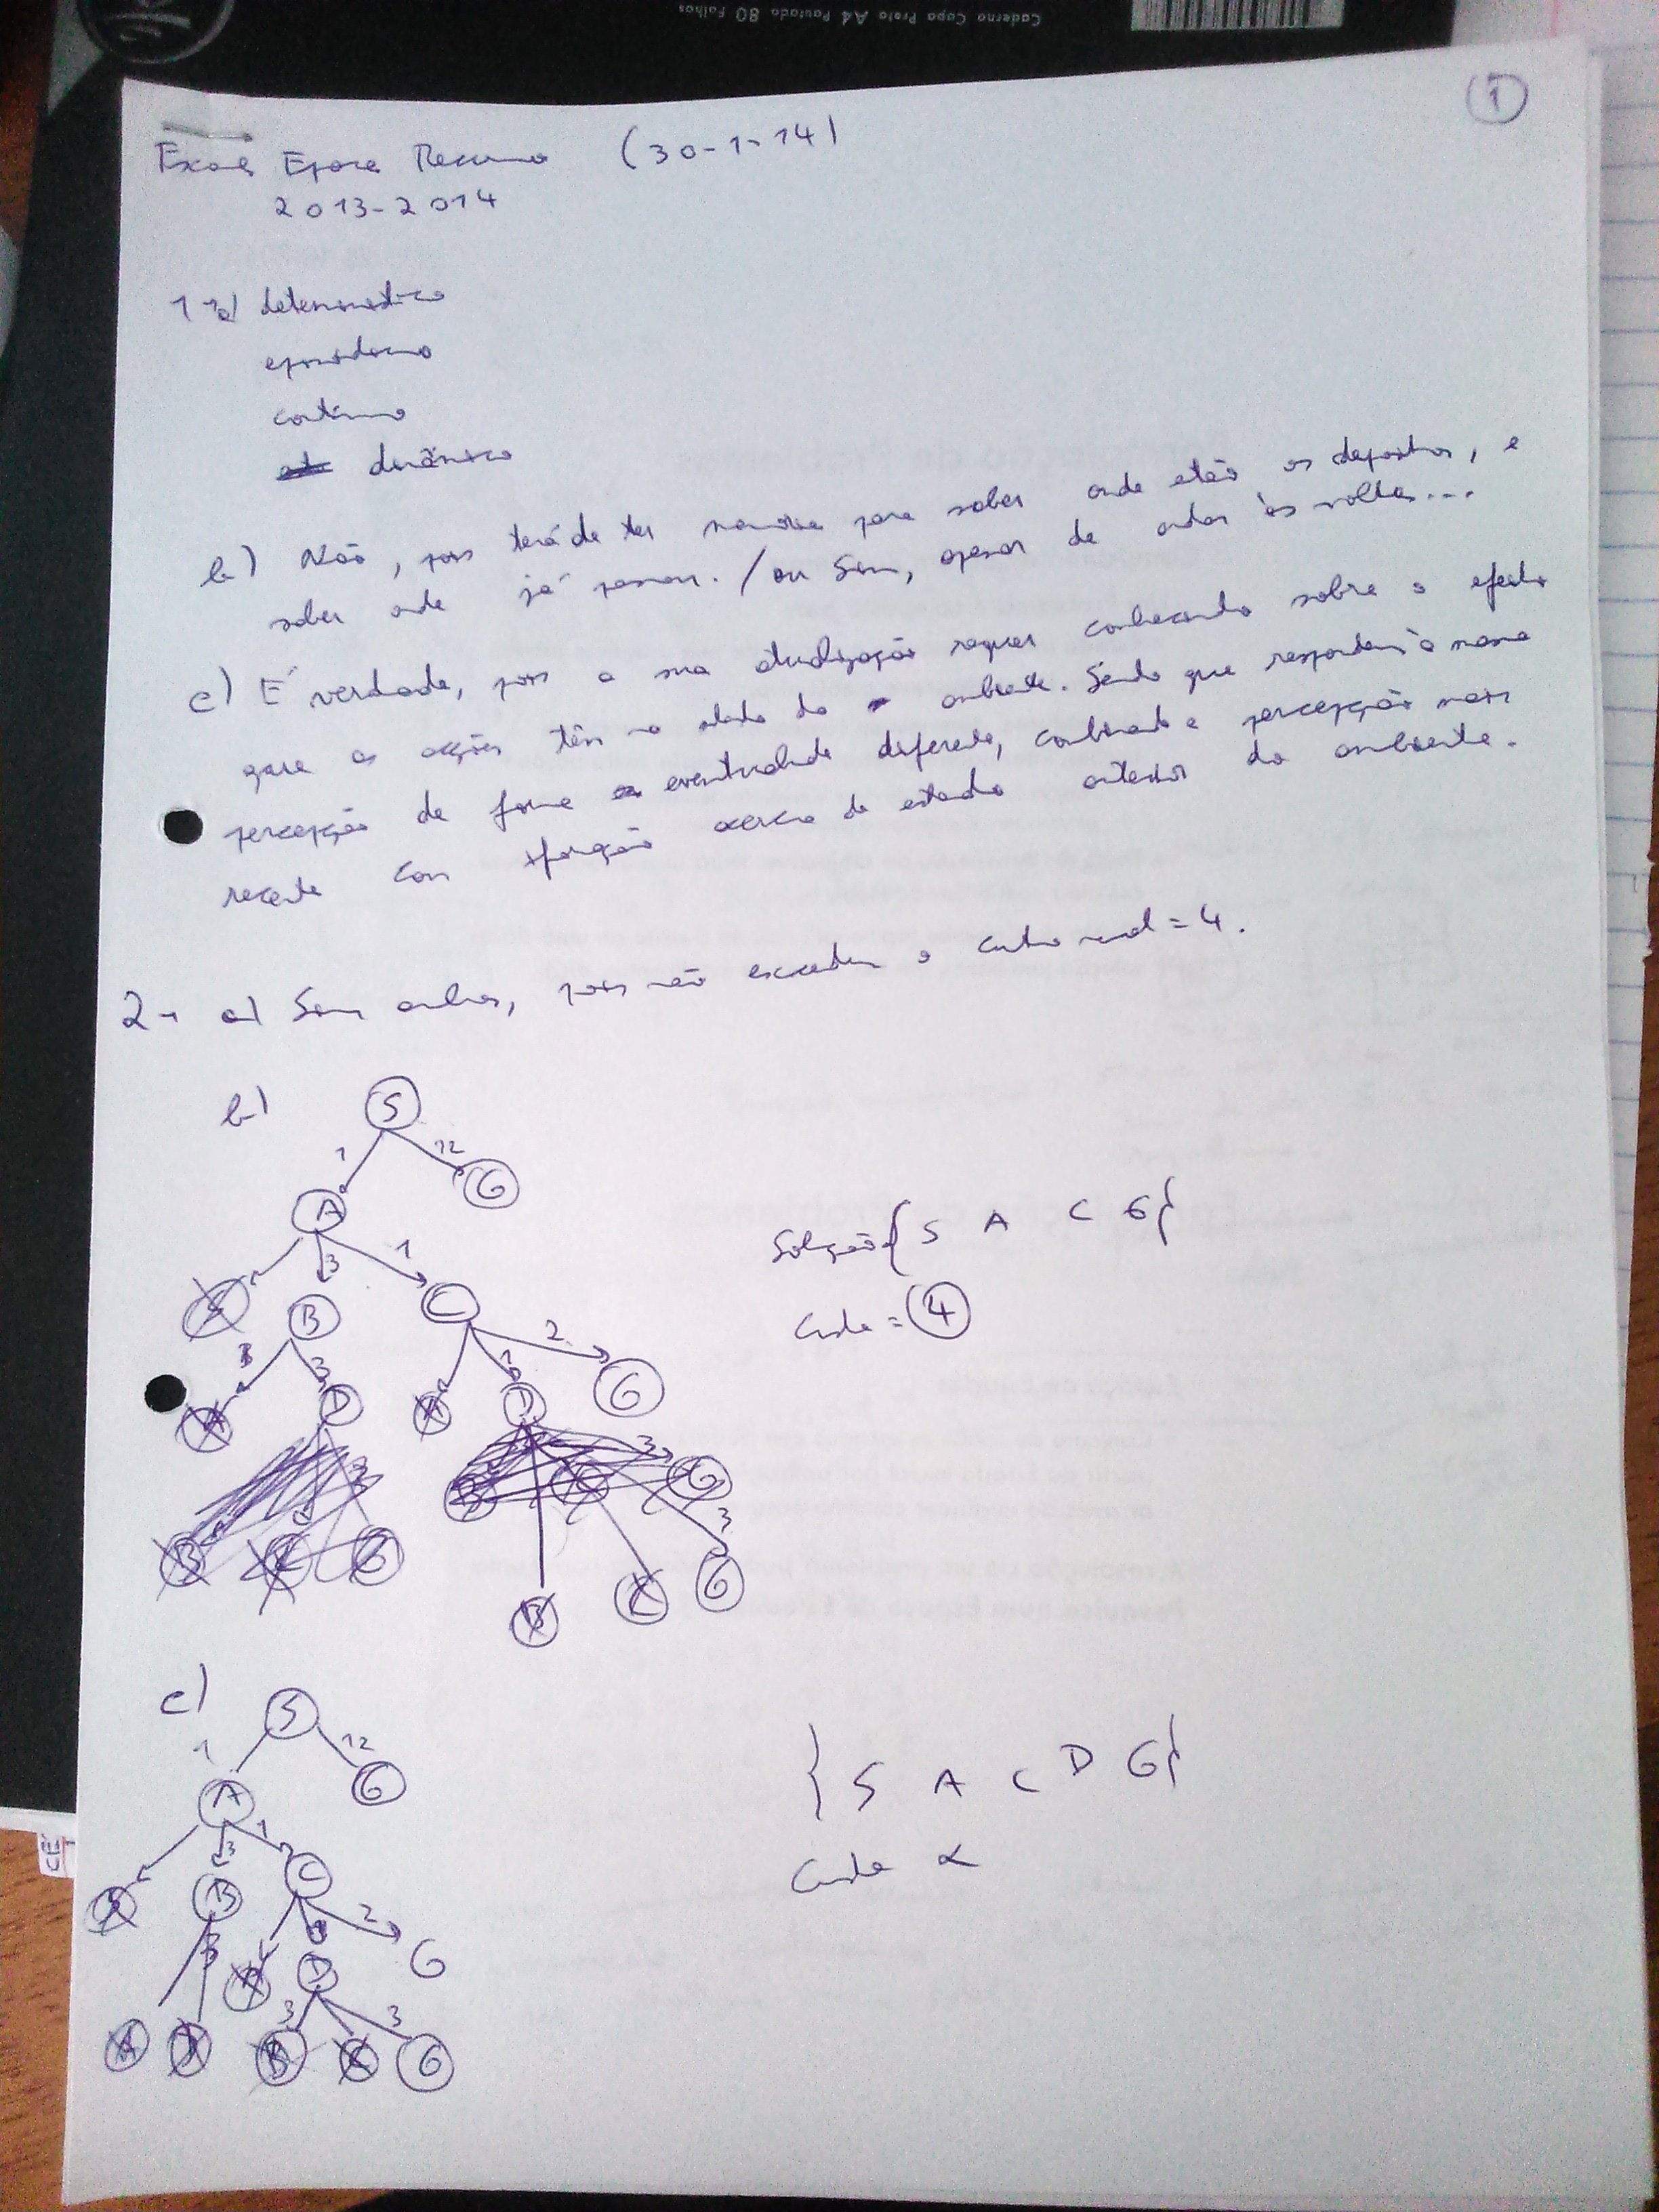 Caderno Capa Preta A4 Pautado 80 Folhas
1
Exame Época Recurso (30-1-14)
2013-2014
1 a) determinístico
episódico
contínuo
dinâmico
b) Não, pois terá de ter memória para saber onde estão os depósitos, e
saber onde já passou. / ou Sim, apesar de andar às voltas...
c) É verdade, pois a sua atualização requer conhecimento sobre o efeito
que as acções têm no estado do ambiente. Sendo que respondem à mesma
percepção de forma eventualidade diferente, combinando a percepção mais
recente com informação acerca do estado anterior do ambiente.
2- a) Sim ambas, pois não excedem o custo real = 4.
b)
S
1 12
A G
3 1
S B C
3 1 2
A D A D G
3 3
B C G B C G
3
B C G
Solução { S A C G }
Custo = 4
c)
S
1 12
A G
3 1
S B C
3 2
A D G
3 3
A D B C G
{ S A C D G }
Custo